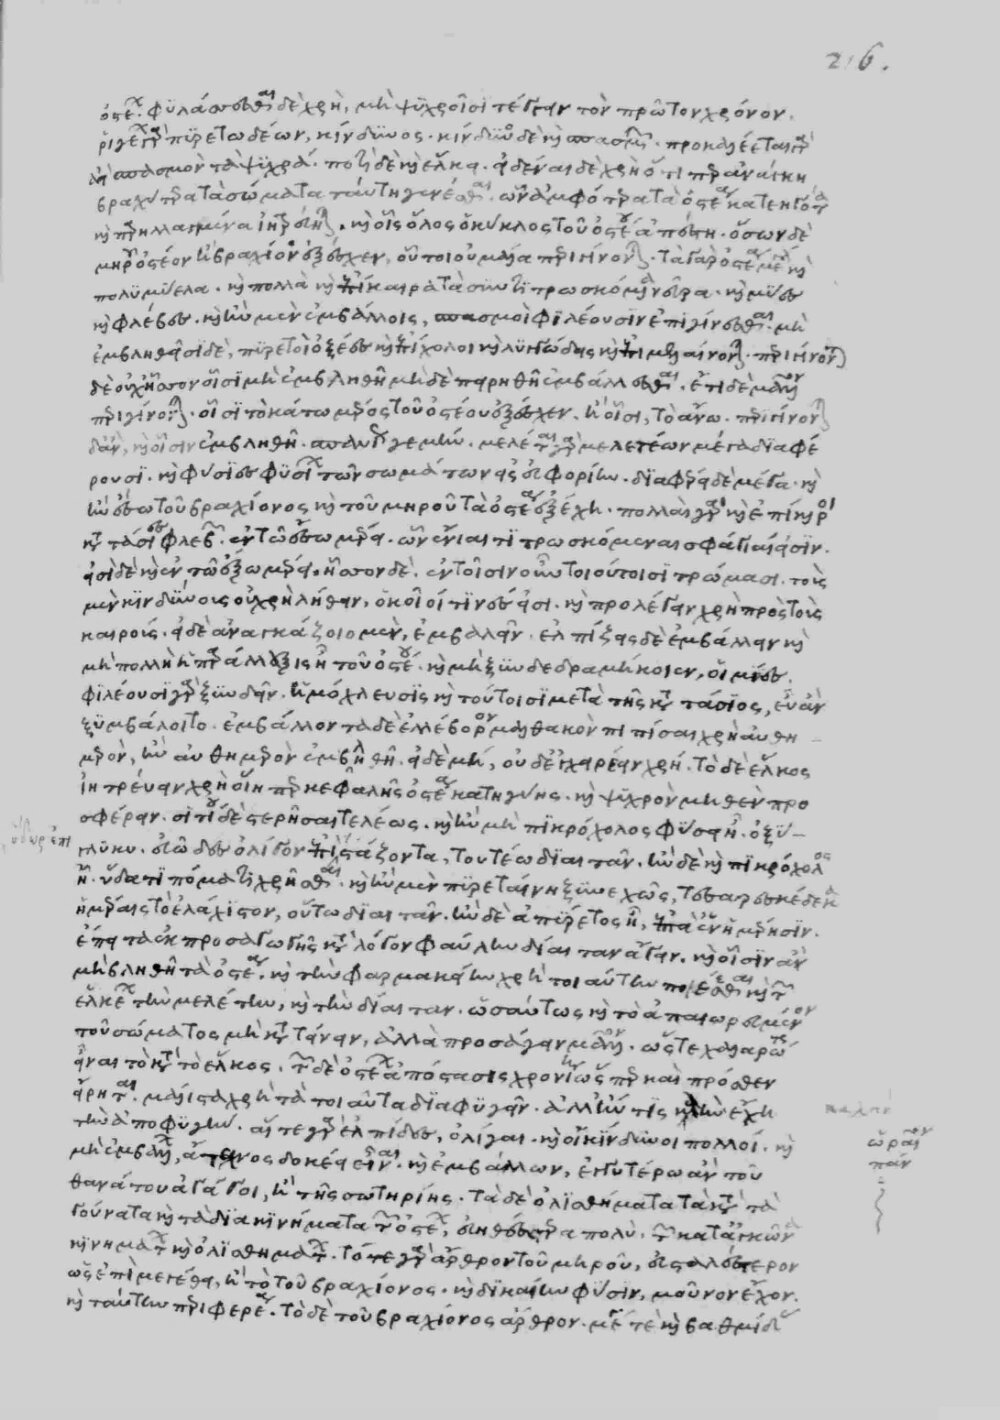 216.
φυλάσσεσθαι δὲ χρὴ, μὴ ψῦχος οἷσί τε δρᾶν τὸν πρῶτον χρόνον.
κίνδυνος. κίνδυνος δὲ καὶ σπασμὸς. προκαλέεται γὰρ
καὶ σπασμὸν τὰ ψυχρά. ποτὶ δὲ καὶ ἕλκεα. εἰδέναι δὲ χρὴ ὅτι περ ἀνάγκη
βραχύτερα τὰ σώματα ταύτῃ γενέσθαι. ὧν ἀμφότερα τὰ ὀστέα κατεηγότα
καὶ παρηλλαγμένα ἰητρεύηται. καὶ οἷς ὅλος ὁ κύκλος τοῦ ὀστέου ἀπέστη. ὅσων δὲ
μηροῦ ὀστέον ἢ βραχίονος ἐξέσχεν, οὗτοι οὐ μάλα περιγίνονται. τὰ γὰρ ὀστέα μεγάλα καὶ
πολυμύελα. καὶ πολλὰ καὶ ἐπίκαιρα τὰ συντιτρωσκόμενα νεῦρα. καὶ μύες
καὶ φλέβες. καὶ ἢν μὲν ἐμβάλλοις, σπασμοὶ φιλέουσιν ἐπιγίνεσθαι. μὴ
ἐμβληθεῖσι δὲ, πυρετοὶ ὀξέες καὶ ἐπίχολοι καὶ λυγγώδεες καὶ ἐπιμελαίνονται. περιγίνονται
δὲ οὐχ ἧσσον οἷσι μὴ ἐμβληθῇ μηδὲ πειρηθῇ ἐμβάλλεσθαι. ἔτι δὲ μᾶλλον
περιγίνονται. οἷσι τὸ κάτω μέρος τοῦ ὀστέου ἐξέσχεν. ἢ οἷσι, τὸ ἄνω. περιγίνονται
δ' ἂν, καὶ οἷσιν ἐμβληθῇ. σπανίως γε μὴν. μελέται γὰρ μελετέων μέγα διαφέ
ρουσι. καὶ φύσιες φυσίων τῶν σωμάτων ἐς εὐφορίην. διαφέρει δὲ μέγα. καὶ
ἢν ἔσω τοῦ βραχίονος καὶ τοῦ μηροῦ τὰ ὀστέα ἐξέχῃ. πολλαὶ γὰρ καὶ ἐπίκαιροι
κατατάσιες φλεβῶν. ἐν τῷ ἔσω μέρει. ὧν ἔνιαι τιτρωσκόμεναι σφάγιαί εἰσιν.
εἰσὶ δὲ καὶ ἐν τῷ ἔξω μέρει. ἧσσον δὲ. ἐν τοῖσιν οὖν τοιούτοισι τρώμασι. τοὺς
μὲν κινδύνους οὐ χρὴ λήθειν, ὁκοῖοί τινές εἰσι. καὶ προλέγειν χρὴ πρὸς τοὺς
καιρούς. εἰ δὲ ἀναγκάζοιο μὲν, ἐμβαλεῖν. ἐλπίζεις δὲ ἐμβάλλειν καὶ
μὴ πολλὴ ἡ παράλλαξις ᾖ τοῦ ὀστέου. καὶ μὴ ξυνδεδραμήκοιεν, οἱ μύες.
φιλέουσι γὰρ ξυνθεῖν. ἡ μόχλευσις καὶ τούτοισι μετὰ τῆς κατατάσιος, εὖ ἂν
ξυμβάλοιτο. ἐμβάλλοντα δὲ ἐλλέβορον μαλθακὸν πιπίσαι χρὴ αὐθη
μερὸν, ἢν αὐθημερὸν ἐμβληθῇ. εἰ δὲ μὴ, οὐδ' ἐγχειρέειν χρή. τὸ δὲ ἕλκος
ἰητρεύειν χρὴ οἷσιπερ κεφαλῆς ὀστέα κατηγυίης. καὶ ψυχρὸν μηθὲν προ
σφέρειν. σιτίου δὲ στερῆσαι τελέως. καὶ ἢν μὴ πικρόχολος φύσει ᾖ. ὀξύ–
γλυκυ. εὐῶδες ὀλίγον ἐπιστάζοντα, τουτέῳ διαιτᾶν. ἢν δὲ καὶ πικρόχολος
ᾖ. ὕδατι πόματι χρῆσθαι. καὶ ἢν μὲν πυρεταίνῃ ξυνεχῶς, τεσσαρεσκαίδεκα
ἡμέρας τὸ ἐλάχιστον, οὕτω διαιτᾶν. ἢν δὲ ἀπύρετος ᾖ, ἑπτὰ ἡμέρῃσιν.
ἔπειτα ἐκ προσαγωγῆς κατὰ λόγον φαύλην δίαιταν ἄγειν. καὶ οἷσιν ἂν
μὴ βληθῇ τὰ ὀστέα, καὶ τὴν φαρμακείην χρὴ τοιαύτην ποιέεσθαι καὶ τῶν
ἑλκέων τὴν μελέτην, καὶ τὴν δίαιταν. ὡσαύτως καὶ τὸ ἀπαιωρεύμενον
τοῦ σώματος μὴ κατατείνειν, ἀλλὰ προσάγειν μᾶλλον. ὥστε χαλαρώτερον
εἶναι τὸ κατὰ τὸ ἕλκος. τῶν δὲ ὀστέων ἀπόστασις χρονίη ὥσπερ καὶ πρόσθεν
εἴρηται. μάλιστα χρὴ τὰ τοιαῦτα διαφυγεῖν. ἀλλ' ἤν τις καλὴν ἔχῃ
τὴν ἀποφυγήν. αἵ τε γὰρ ἐλπίδες, ὀλίγαι. καὶ οἱ κίνδυνοι πολλοί. καὶ
μὴ ἐμβάλλων, ἄτεχνος δοκέει εἶναι. καὶ ἐμβάλλων, ἐγγυτέρω ἂν τοῦ
θανάτου ἀγάγοι, ἢ τῆς σωτηρίης. τὰ δὲ ὀλισθήματα τὰ κατὰ τὰ
γούνατα καὶ τὰ διακινήματα τῶν ὀστέων, εὐηθέστερα πολὺ. τῶν κατ' ἀγκῶνα
κινημάτων καὶ ὀλισθημάτων. τό τε γὰρ ἄρθρον τοῦ μηροῦ, εὐσταλέστερον
ὡς ἐπὶ μεγέθει, ἢ τὸ τοῦ βραχίονος. καὶ δικαίην φύσιν, μοῦνον ἔχον.
καὶ ταύτην περιφερέα. τὸ δὲ τοῦ βραχίονος ἄρθρον. μέγα τε καὶ βαθμίδας